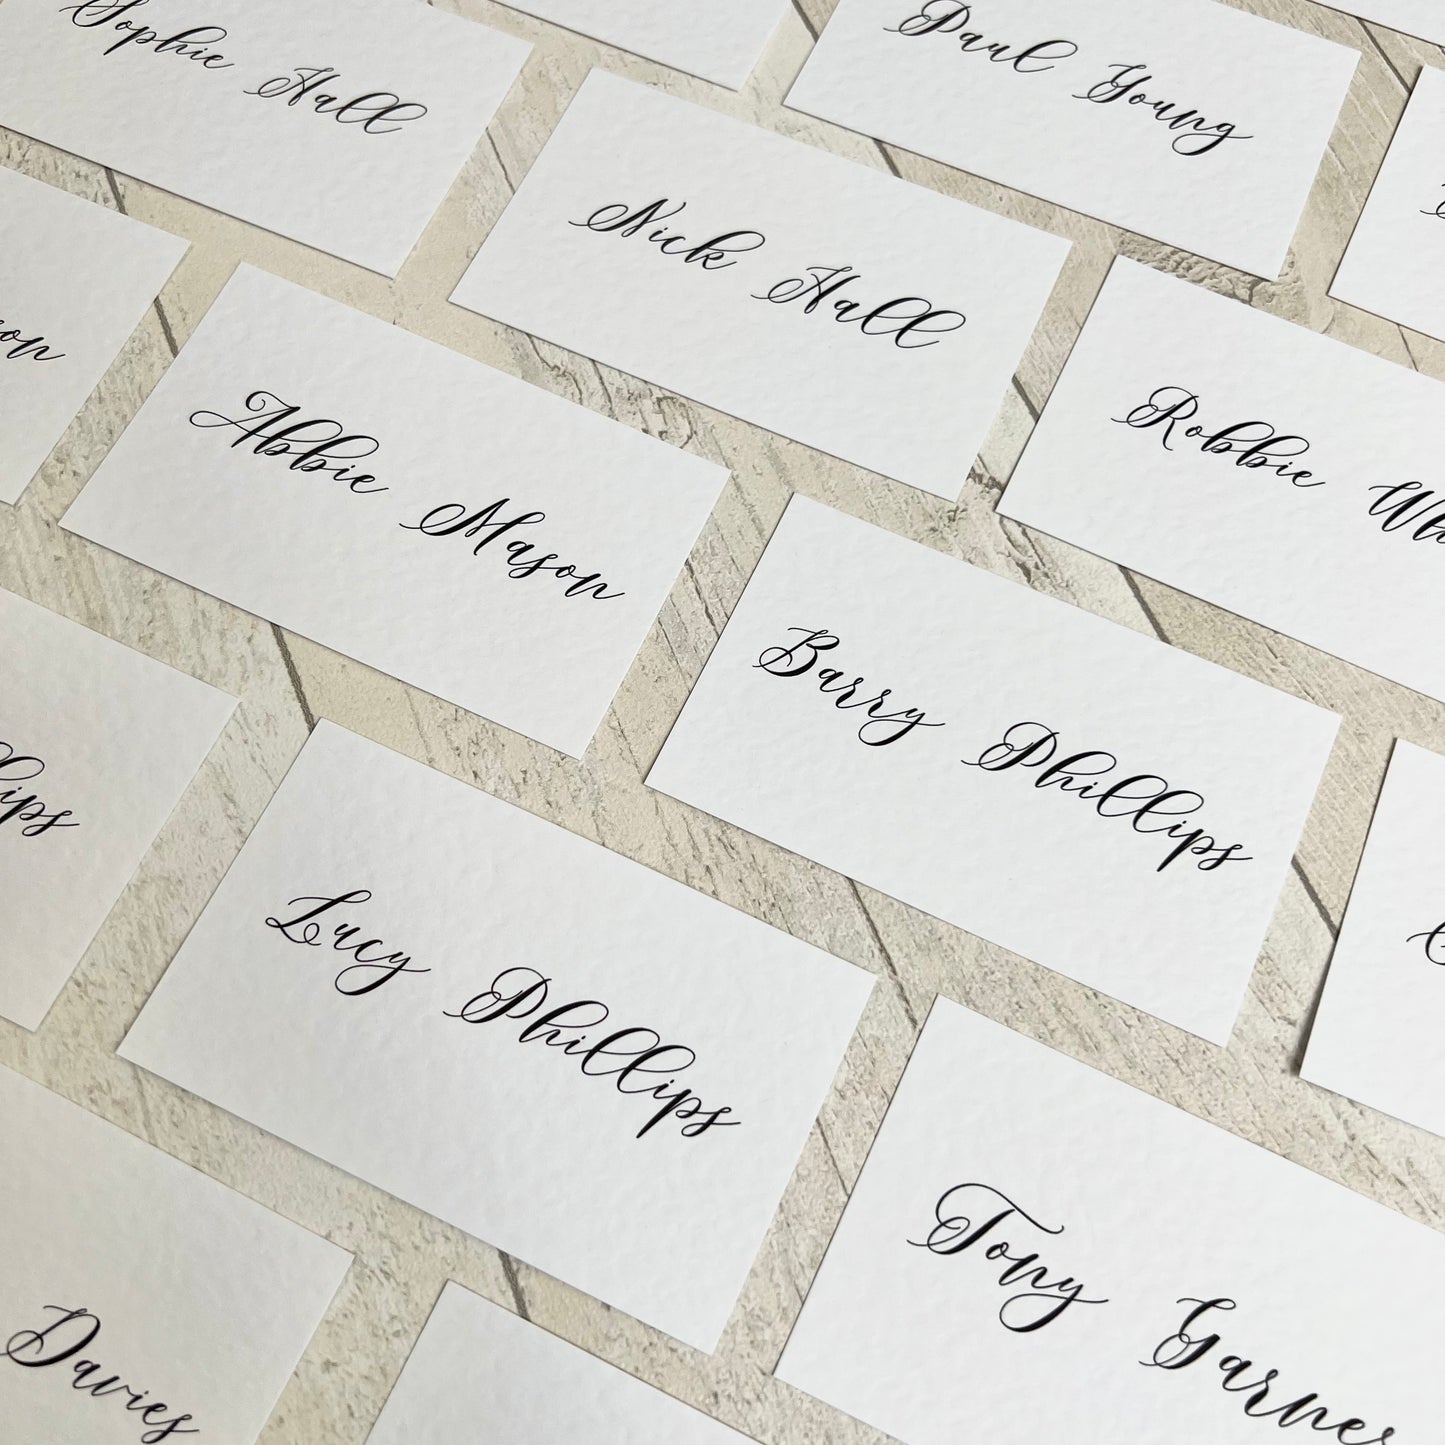 Sophie Hall
Paul Young
Nick Hall
Robbie
Abbie Mason
Barry Phillips
Lucy Phillips
Tony Garner
Davies